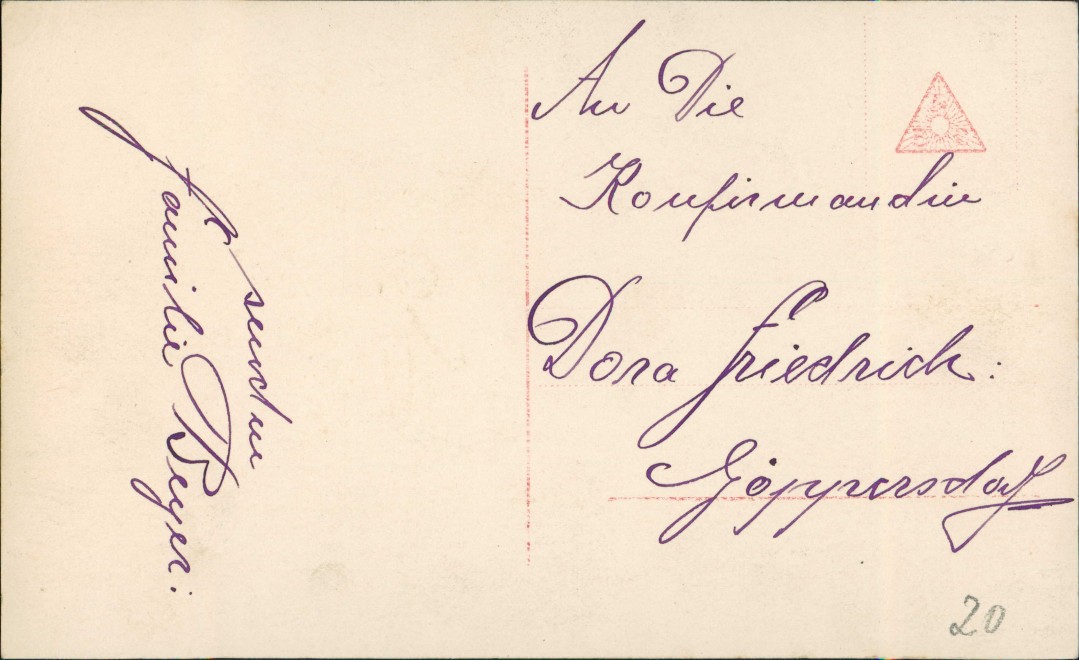 senden
Familie Beyer:
An Die
Konfirmandin
Dora Friedrich:
Göppersdorf
20